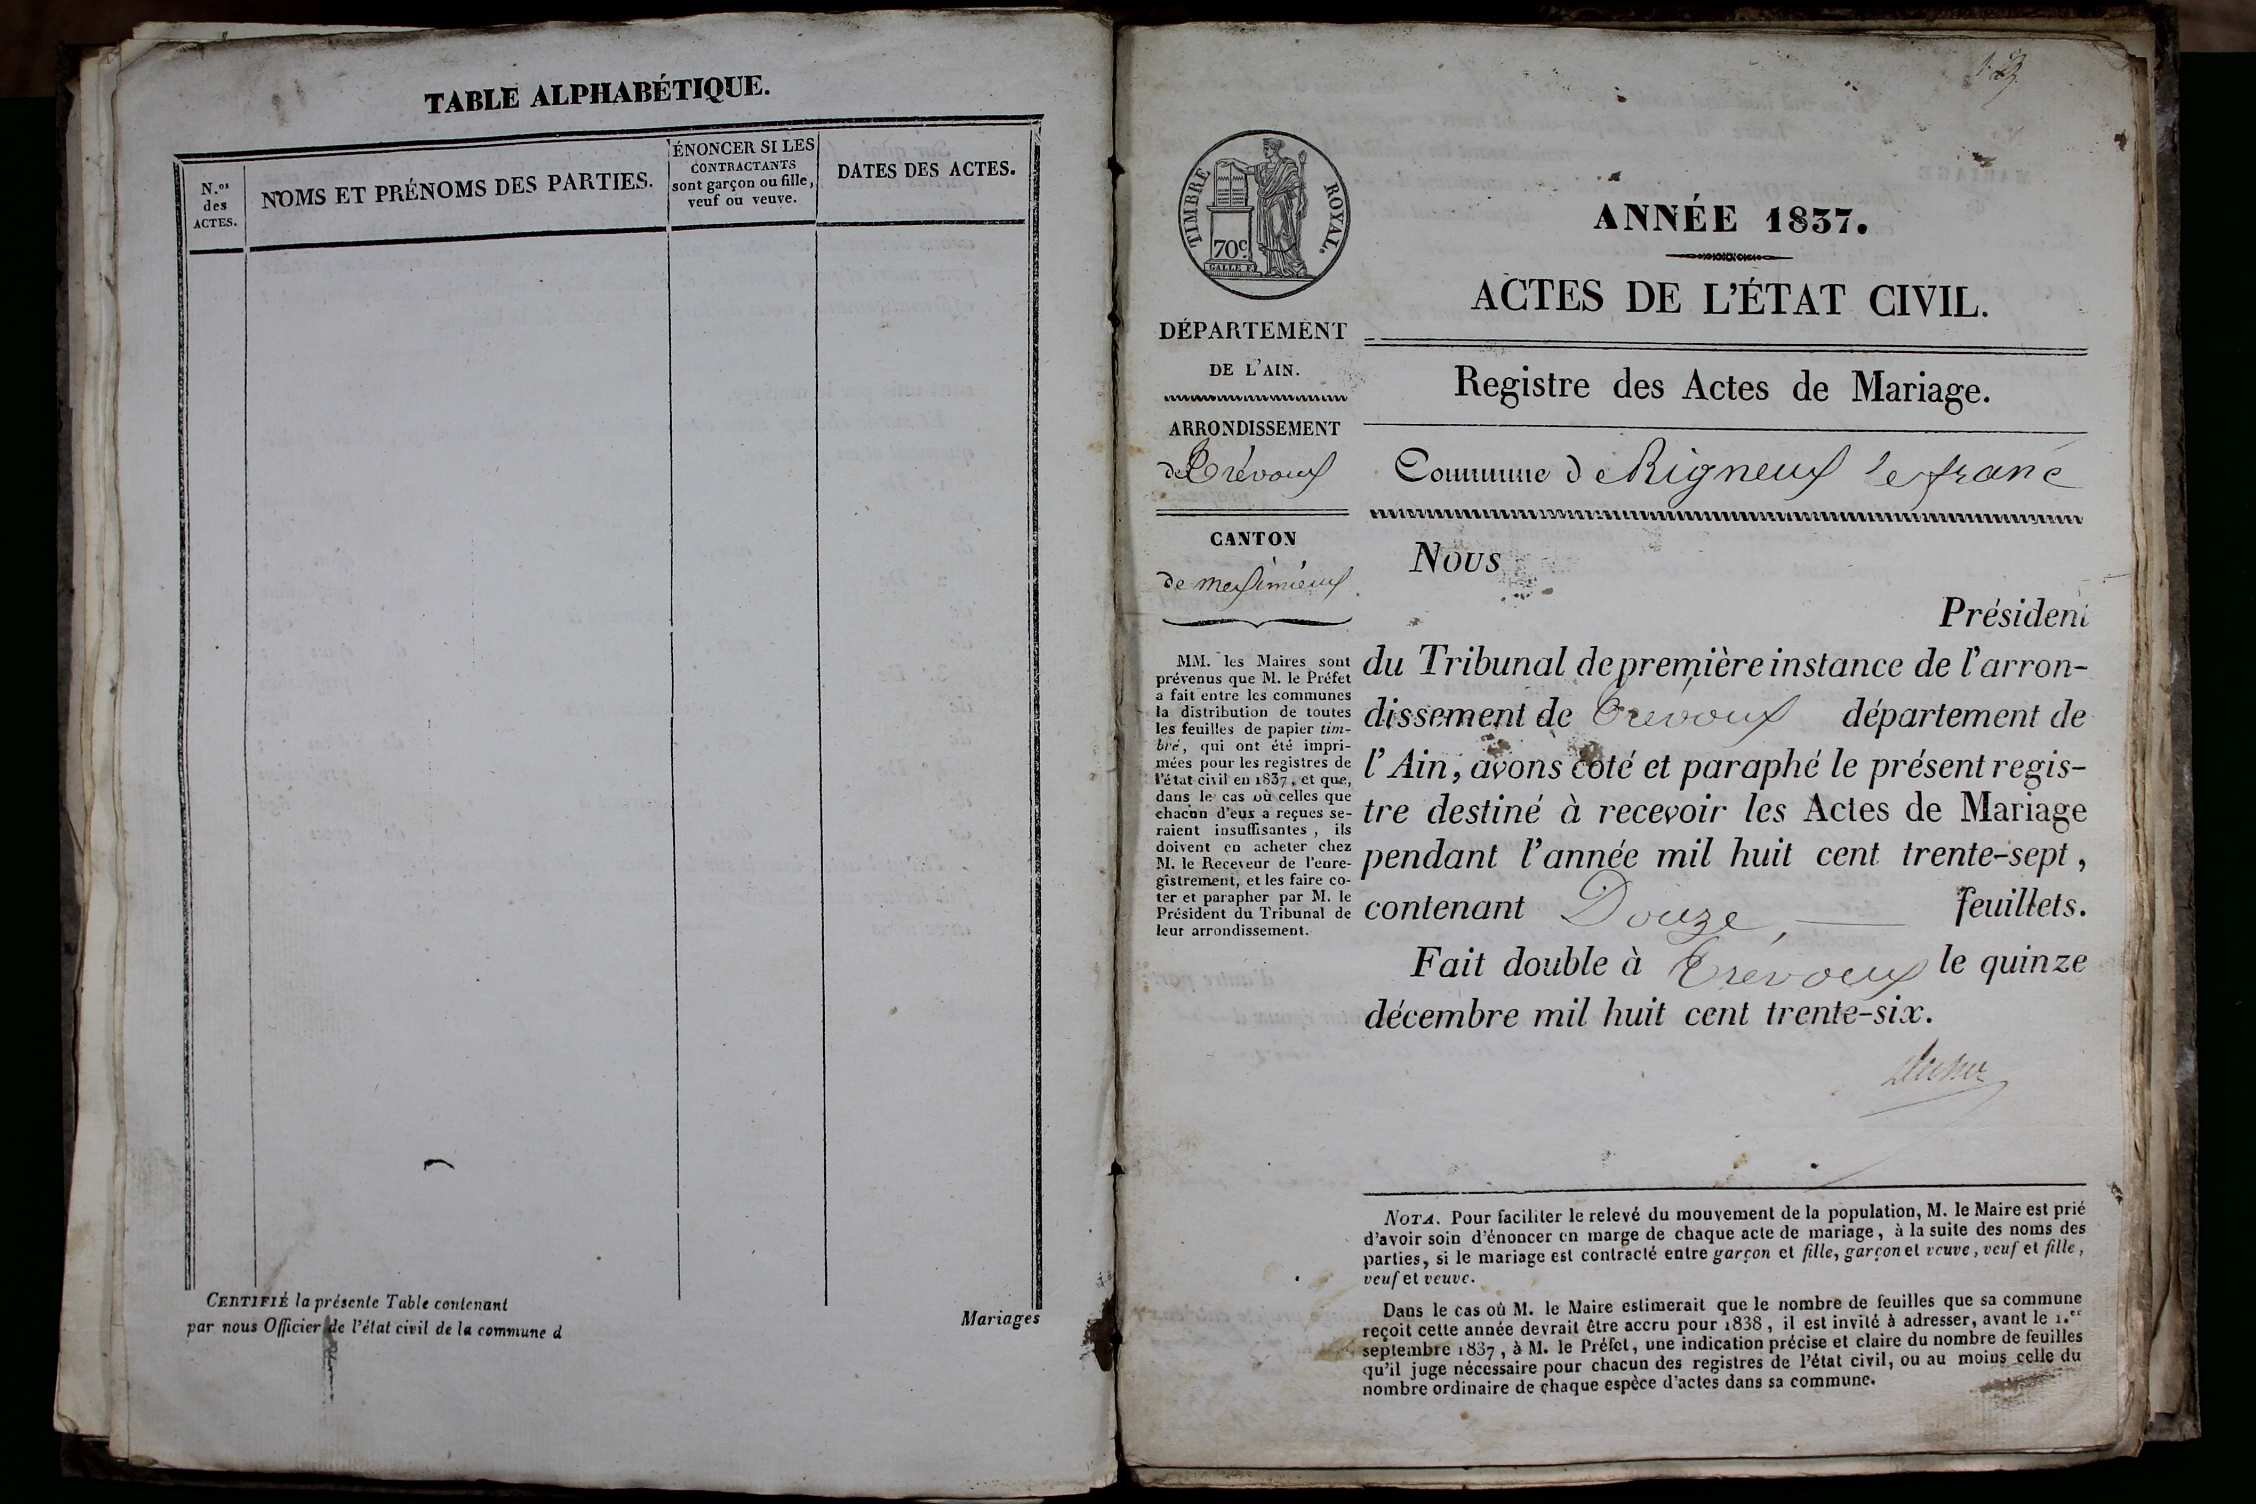 TABLE ALPHABÉTIQUE.
N.os
des
ACTES.
NOMS ET PRÉNOMS DES PARTIES.
ÉNONCER SI LES
CONTRACTANTS
sont garçon ou fille,
veuf ou veuve.
DATES DES ACTES.
CERTIFIÉ la présente Table contenant
Mariages
par nous Officier de l'état civil de la commune d
TIMBRE ROYAL.
70c
DÉPARTEMENT
DE L'AIN.
ARRONDISSEMENT
de Trévoux
CANTON
de meximieux
MM. les Maires sont
prévenus que M. le Préfet
a fait entre les communes
la distribution de toutes
les feuilles de papier tim-
bré, qui ont été impri-
mées pour les registres de
l'état civil en 1837, et que,
dans le cas où celles que
chacun d'eux a reçues se-
raient insuffisantes, ils
doivent en acheter chez
M. le Receveur de l'enre-
gistrement, et les faire co-
ter et parapher par M. le
Président du Tribunal de
leur arrondissement.
ANNÉE 1837.
ACTES DE L'ÉTAT CIVIL.
Registre des Actes de Mariage.
Commune de Rigneux le franc
Nous
Président
du Tribunal de première instance de l'arron-
dissement de Trévoux département de
l'Ain, avons coté et paraphé le présent regis-
tre destiné à recevoir les Actes de Mariage
pendant l'année mil huit cent trente-sept,
contenant Douze feuillets.
Fait double à Trévoux le quinze
décembre mil huit cent trente-six.
NOTA. Pour faciliter le relevé du mouvement de la population, M. le Maire est prié
d'avoir soin d'énoncer en marge de chaque acte de mariage, à la suite des noms des
parties, si le mariage est contracté entre garçon et fille, garçon et veuve, veuf et fille,
veuf et veuve.
Dans le cas où M. le Maire estimerait que le nombre de feuilles que sa commune
reçoit cette année devrait être accru pour 1838, il est invité à adresser, avant le 1.er
septembre 1837, à M. le Préfet, une indication précise et claire du nombre de feuilles
qu'il juge nécessaire pour chacun des registres de l'état civil, ou au moins celle du
nombre ordinaire de chaque espèce d'actes dans sa commune.